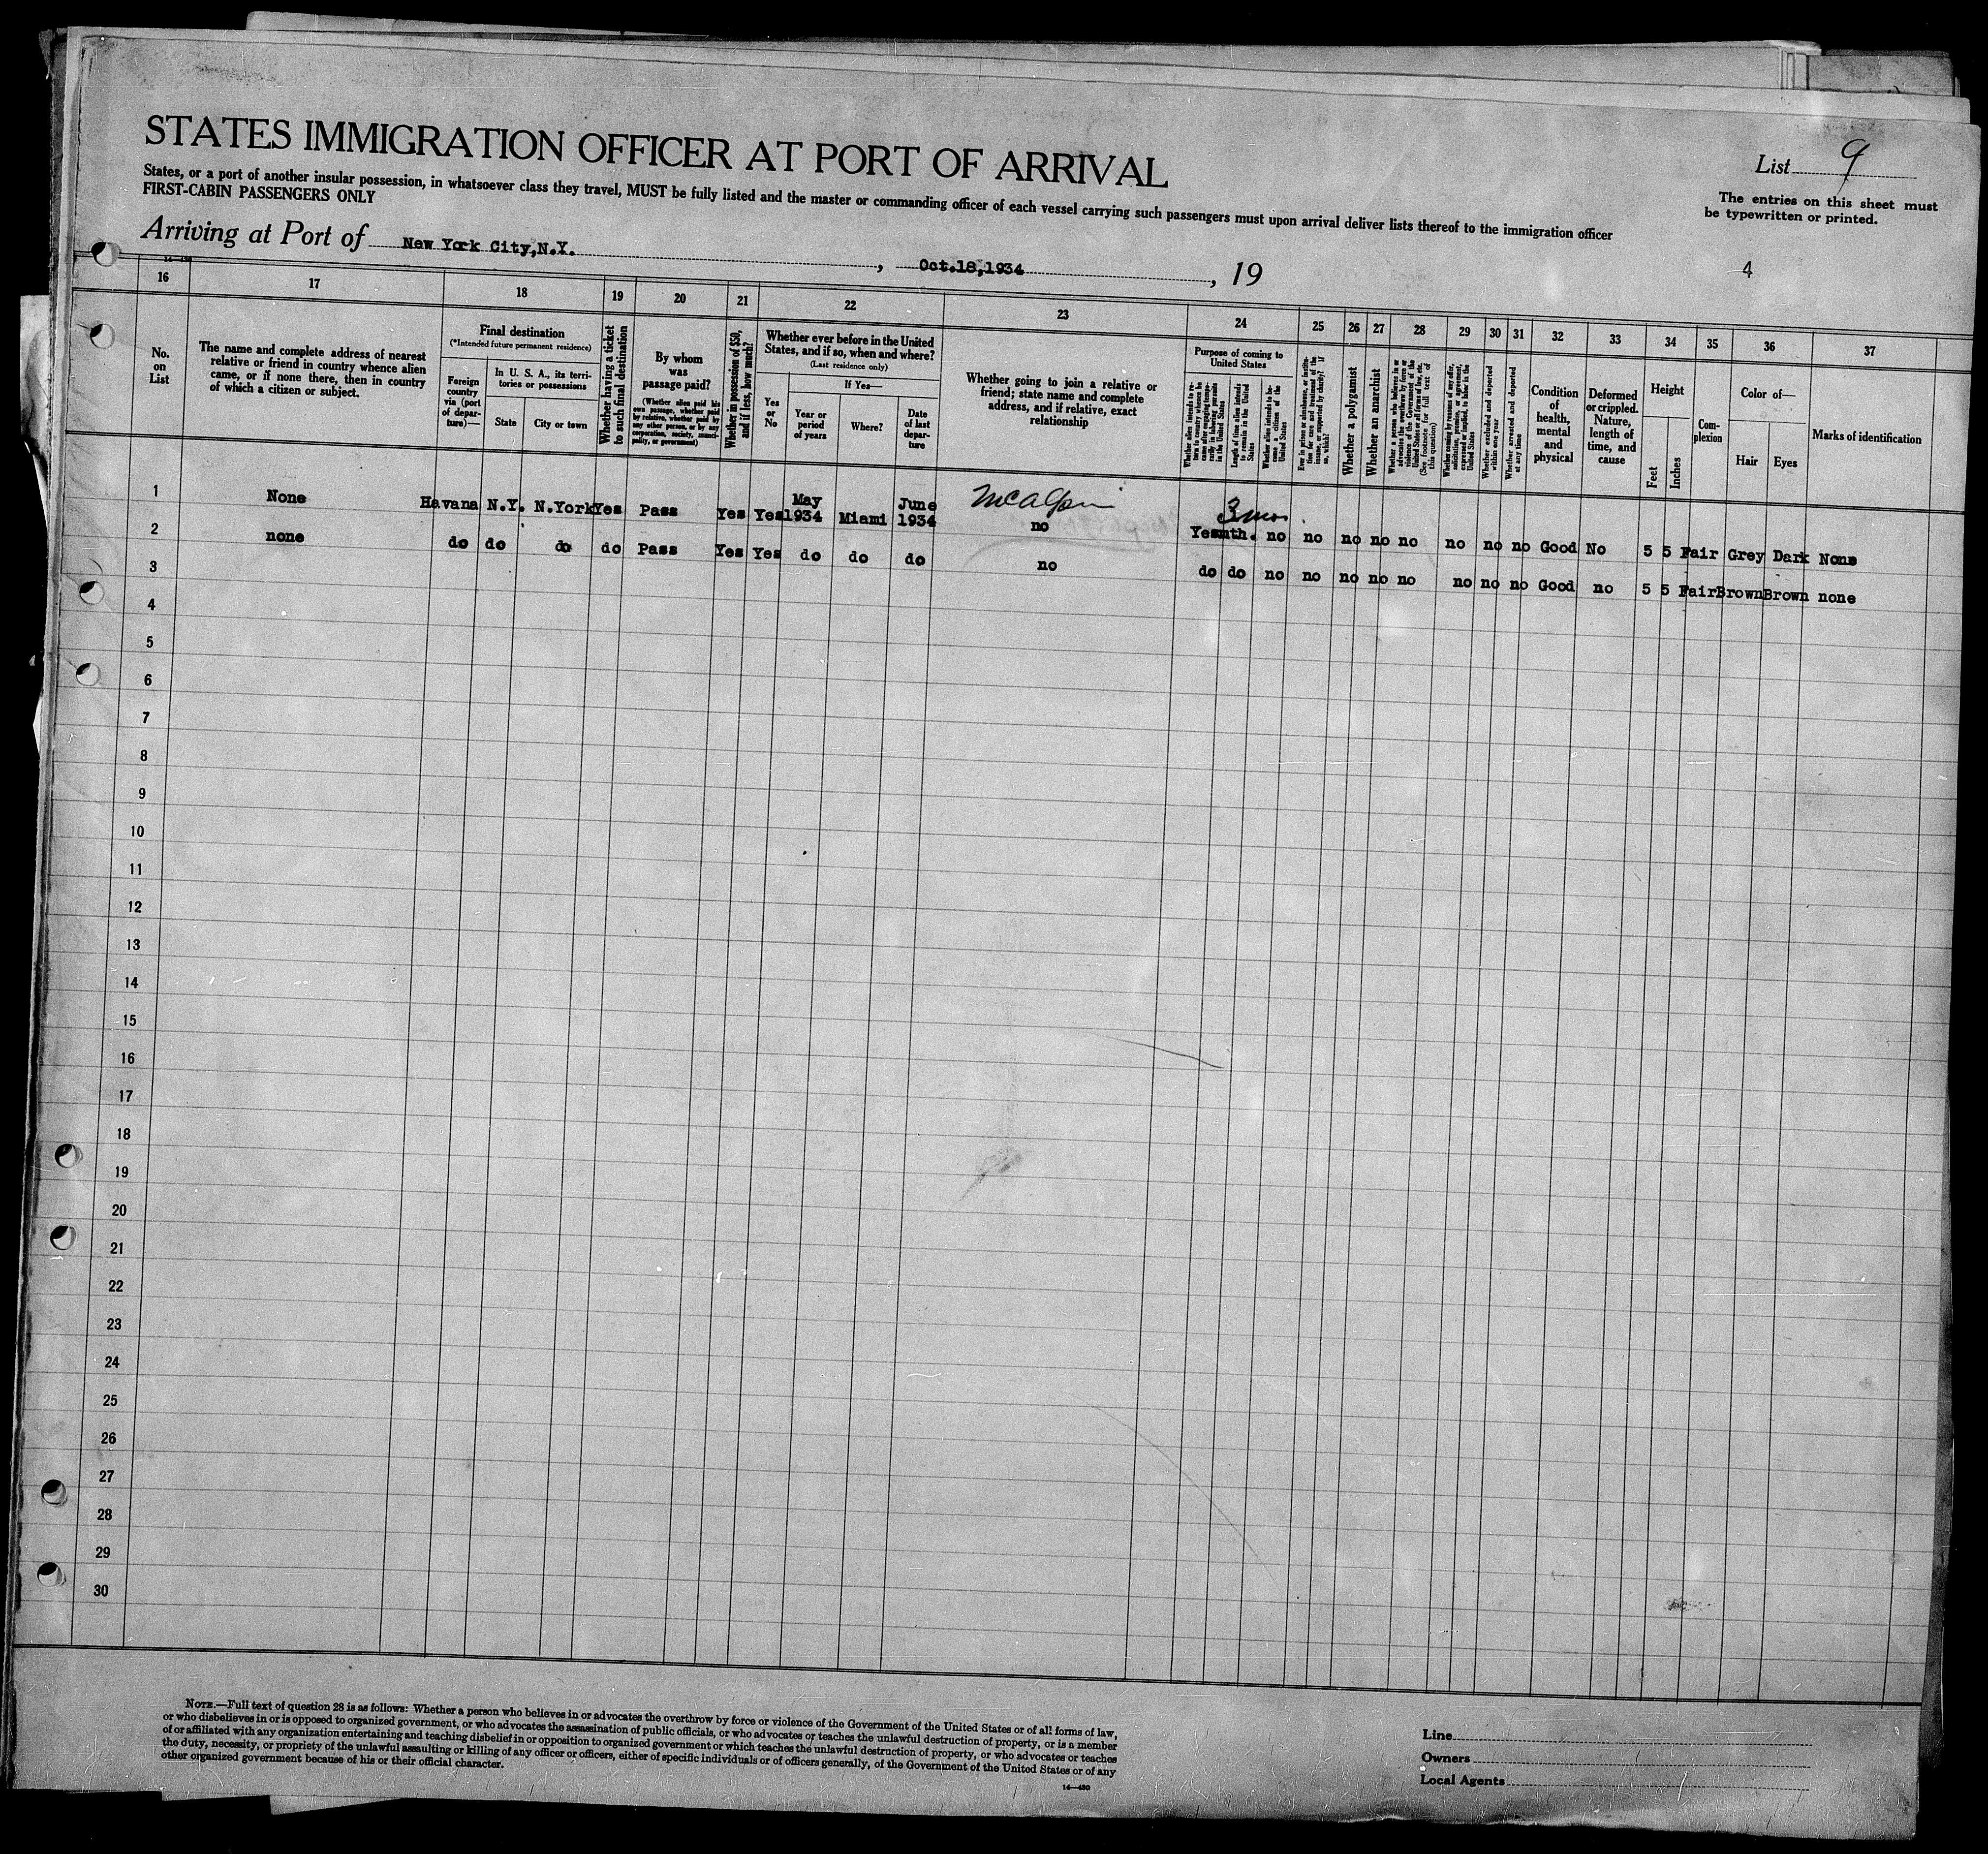 STATES IMMIGRATION OFFICER AT PORT OF ARRIVAL
List 9
States, or a port of another insular possession, in whatsoever class they travel, MUST be fully listed and the master or commanding officer of each vessel carrying such passengers must upon arrival deliver lists thereof to the immigration officer
FIRST-CABIN PASSENGERS ONLY
The entries on this sheet must
be typewritten or printed.
Arriving at Port of New York City, N.Y. , Oct.18,1934 , 19
4
16 17 18 19 20 21 22 23 24 25 26 27 28 29 30 31 32 33 34 35 36 37
No.
on
List
The name and complete address of nearest
relative or friend in country whence alien
came, or if none there, then in country
of which a citizen or subject.
Final destination
(*Intended future permanent residence)
Foreign
country
via (port
of depar-
ture)—
In U. S. A., its terri-
tories or possessions
State
City or town
Whether having a ticket
to such final destination
By whom
was
passage paid?
(Whether alien paid his
own passage, whether paid
by relative, whether paid by
any other person, or by any
corporation, society, munici-
pality, or government)
Whether in possession of $50,
and if less, how much?
Whether ever before in the United
States, and if so, when and where?
(Last residence only)
Yes
or
No
If Yes—
Year or
period
of years
Where?
Date
of last
depar-
ture
Whether going to join a relative or
friend; state name and complete
address, and if relative, exact
relationship
Purpose of coming to
United States
Whether alien intends to re-
turn to country whence he
came after engaging tempo-
rarily in laboring pursuits
in the United States
Length of time alien intends
to remain in the United
States
Whether alien intends to be-
come a citizen of the
United States
Ever in prison or almshouse, or institu-
tion for care and treatment of the
insane, or supported by charity? If
so, which?
Whether a polygamist
Whether an anarchist
Whether a person who believes in or
advocates the overthrow by force or
violence of the Government of the
United States or all forms of law, etc.
(See footnote for full text of
this question)
Whether coming by reasons of any offer,
solicitation, promise, or agreement,
expressed or implied, to labor in the
United States
Whether excluded and deported
within one year
Whether arrested and deported
at any time
Condition
of
health,
mental
and
physical
Deformed
or crippled.
Nature,
length of
time, and
cause
Height
Feet
Inches
Com-
plexion
Color of—
Hair
Eyes
Marks of identification
1 None Havana N.Y. N.York Yes Pass Yes Yes May 1934 Miami June 1934 McAlpin no 3 mos. Yes mth. no no no no no no no no Good No 5 5 Fair Grey Dark None
2 none do do do do Pass Yes Yes do do do no do do no no no no no no no no Good no 5 5 Fair Brown Brown none
3
4
5
6
7
8
9
10
11
12
13
14
15
16
17
18
19
20
21
22
23
24
25
26
27
28
29
30
NOTE.—Full text of question 28 is as follows: Whether a person who believes in or advocates the overthrow by force or violence of the Government of the United States or of all forms of law,
or who disbelieves in or is opposed to organized government, or who advocates the assassination of public officials, or who advocates or teaches the unlawful destruction of property, or is a member
of or affiliated with any organization entertaining and teaching disbelief in or opposition to organized government or which teaches the unlawful destruction of property, or who advocates or teaches
the duty, necessity, or propriety of the unlawful assaulting or killing of any officer or officers, either of specific individuals or of officers generally, of the Government of the United States or of any
other organized government because of his or their official character.
14—480
Line
Owners
Local Agents